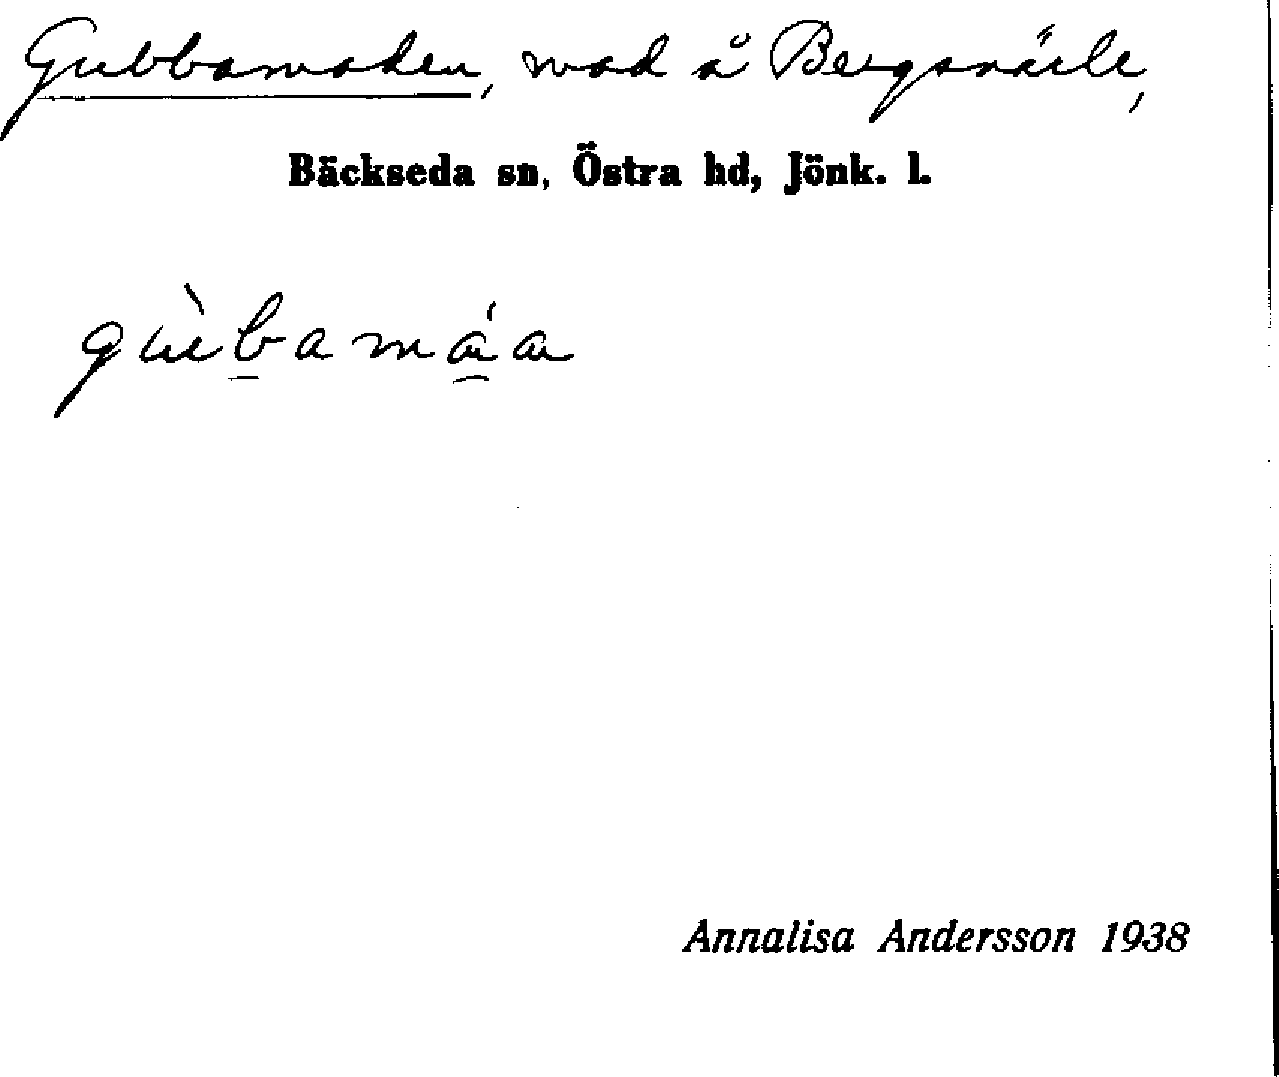 Gubbamaden, mad å Bergsnärle,
Bäckseda sn, Östra hd, Jönk. l.
gùbamáa
Annalisa Andersson 1938